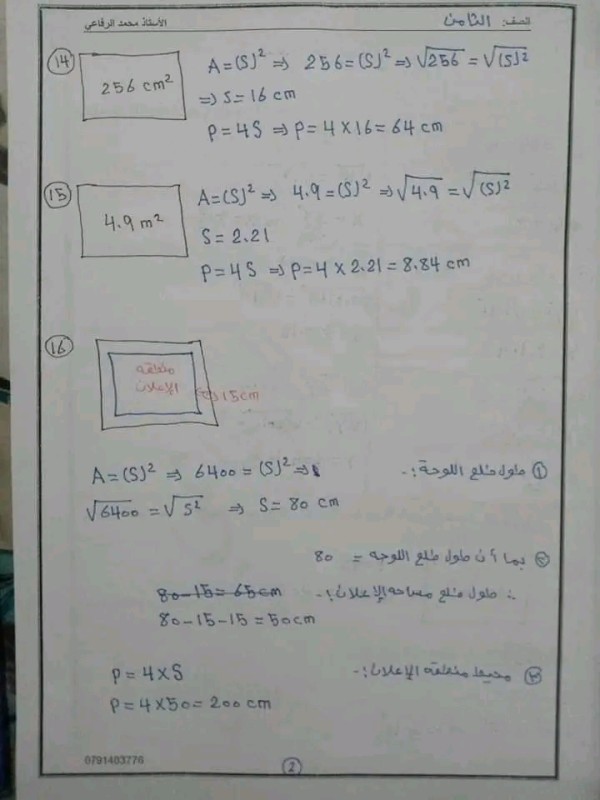 الصف: الثامن
الأستاذ محمد الرفاعي
14
256 cm²
A = (S)² ⇒ 256 = (S)² ⇒ √256 = √(S)²
⇒ S = 16 cm
P = 4S ⇒ P = 4 × 16 = 64 cm
15
4.9 m²
A = (S)² ⇒ 4.9 = (S)² ⇒ √4.9 = √(S)²
S = 2.21
P = 4S ⇒ P = 4 × 2.21 = 8.84 cm
16
منطقة
الإعلان
15cm
① طول ضلع اللوحة :-
A = (S)² ⇒ 6400 = (S)² ⇒
√6400 = √S² ⇒ S = 80 cm
② بما أن طول ضلع اللوحه = 80
∴ طول ضلع مساحه الإعلان :-
80 - 15 = 65 cm
80 - 15 - 15 = 50 cm
③ محيط منطقة الإعلان :-
P = 4 × S
P = 4 × 50 = 200 cm
0791483776
2